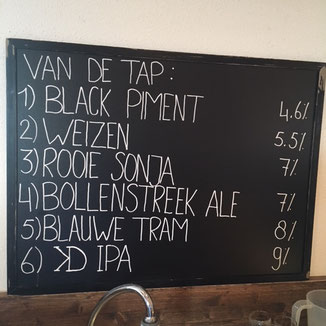 VAN DE TAP:
1) BLACK PIMENT 4.6%
2) WEIZEN 5.5%
3) ROOIE SONJA 7%
4) BOLLENSTREEK ALE 7%
5) BLAUWE TRAM 8%
6) KD IPA 9%